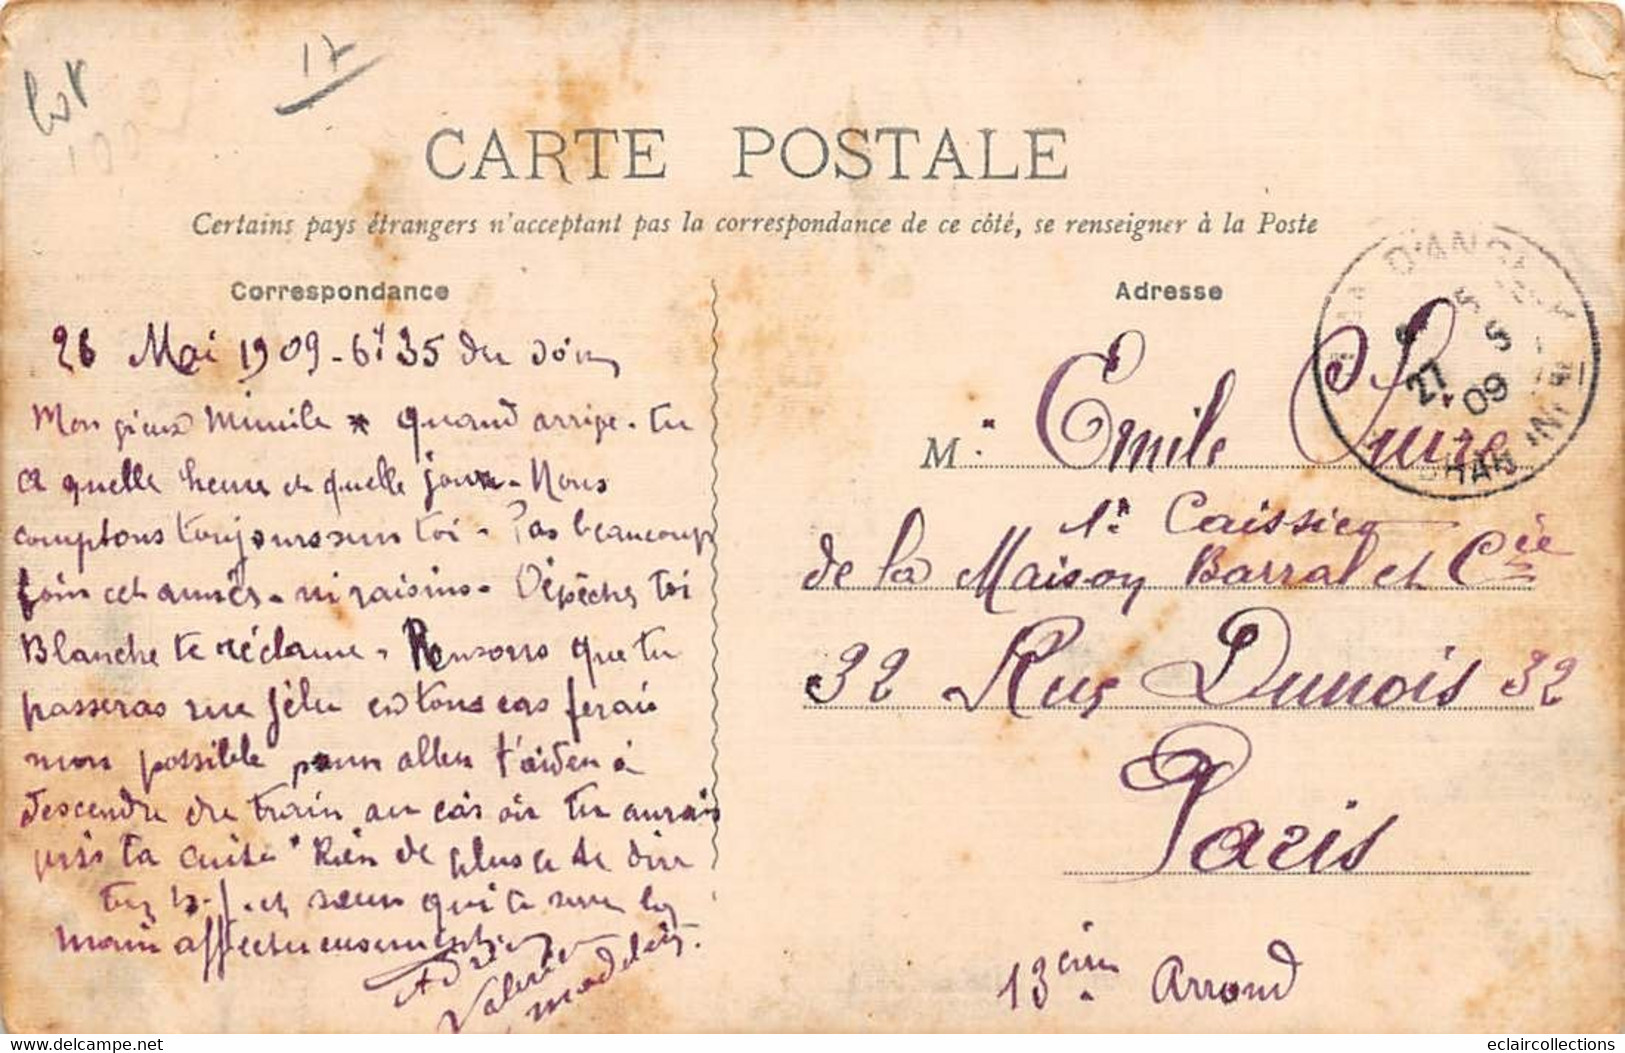 17
CARTE POSTALE
Certains pays étrangers n'acceptent pas la correspondance de ce côté, se renseigner à la Poste
Correspondance
26 Mai 1909 - 6h 35 du soir
Mon vieux Mimile quand arrive-tu
a quelle heure et quelle jour. Nous
comptons toujours sur toi - Pas beaucoup
foin cet année - ni raisins. Dépêche toi
Blanche te réclame. Pensons que tu
passeras en tous cas ferai
mon possible pour aller t'aider à
descendre du train au cas où tu aurais
pris ta cuite. Rien de plus a te dire
ton b-f. et sœur qui te serre la
main affectueusement
Adrien
Valérie
Madeleine
Adresse
D'AN
27 5
09
CHAR INF
M. Emile
1er Caissier
de la Maison Barral et Cie
32 Rue Dunois 32
Paris
13eme Arrond
eclaircollections